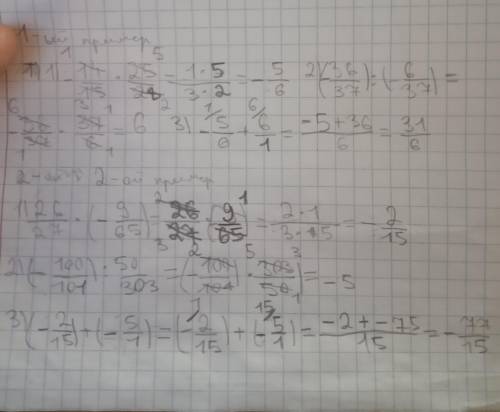 1-ый пример
1) - 14/15 · 25/28 = 1·5/3·2 = - 5/6 2) (36/37) : (- 6/37) =
- 36/37 · 37/6 = 6 3) - 5/6 + 6/1 = -5+36/6 = 31/6
2-ой пример
1) 26/27 · (- 9/65) = 26/27 · 9/65 = 2·1/3·15 = - 2/15
2) (- 100/101) : 50/303 = (- 100/101) · 303/50 = -5
3) (- 2/15) + (- 5/1) = (- 2/15) + (- 5/1) = -2 + -75/15 = - 77/15